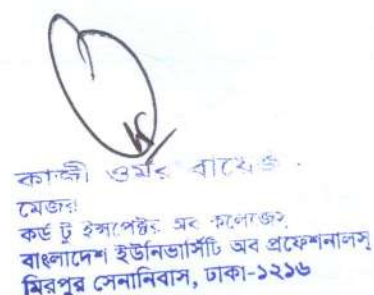 কাজী ওমর
মেজর
কর্ড টু ইন্সপেক্টর অব কলেজেস
বাংলাদেশ ইউনিভার্সিটি অব প্রফেশনালস্
মিরপুর সেনানিবাস, ঢাকা-১২১৬